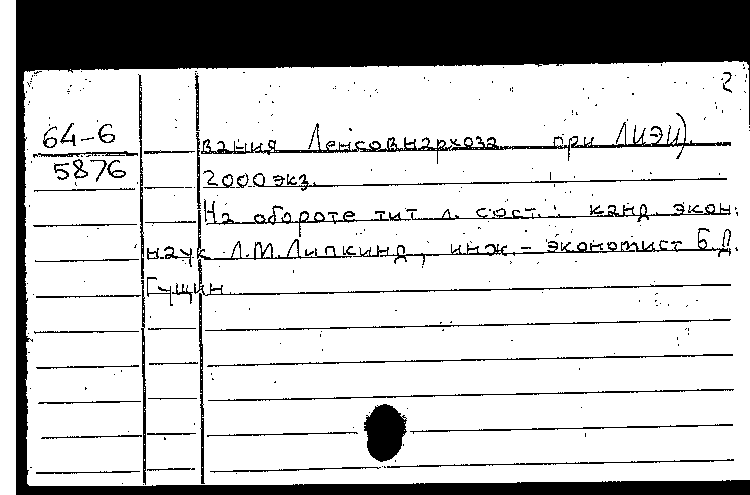 2
64-6
5876
вания Ленсовнархоза при ЛИЭИ).
2000 экз.
На обороте тит. л. сост.: канд. экон.
наук Л.М.Липкинд, инж.-экономист Б.Д.
Гущин